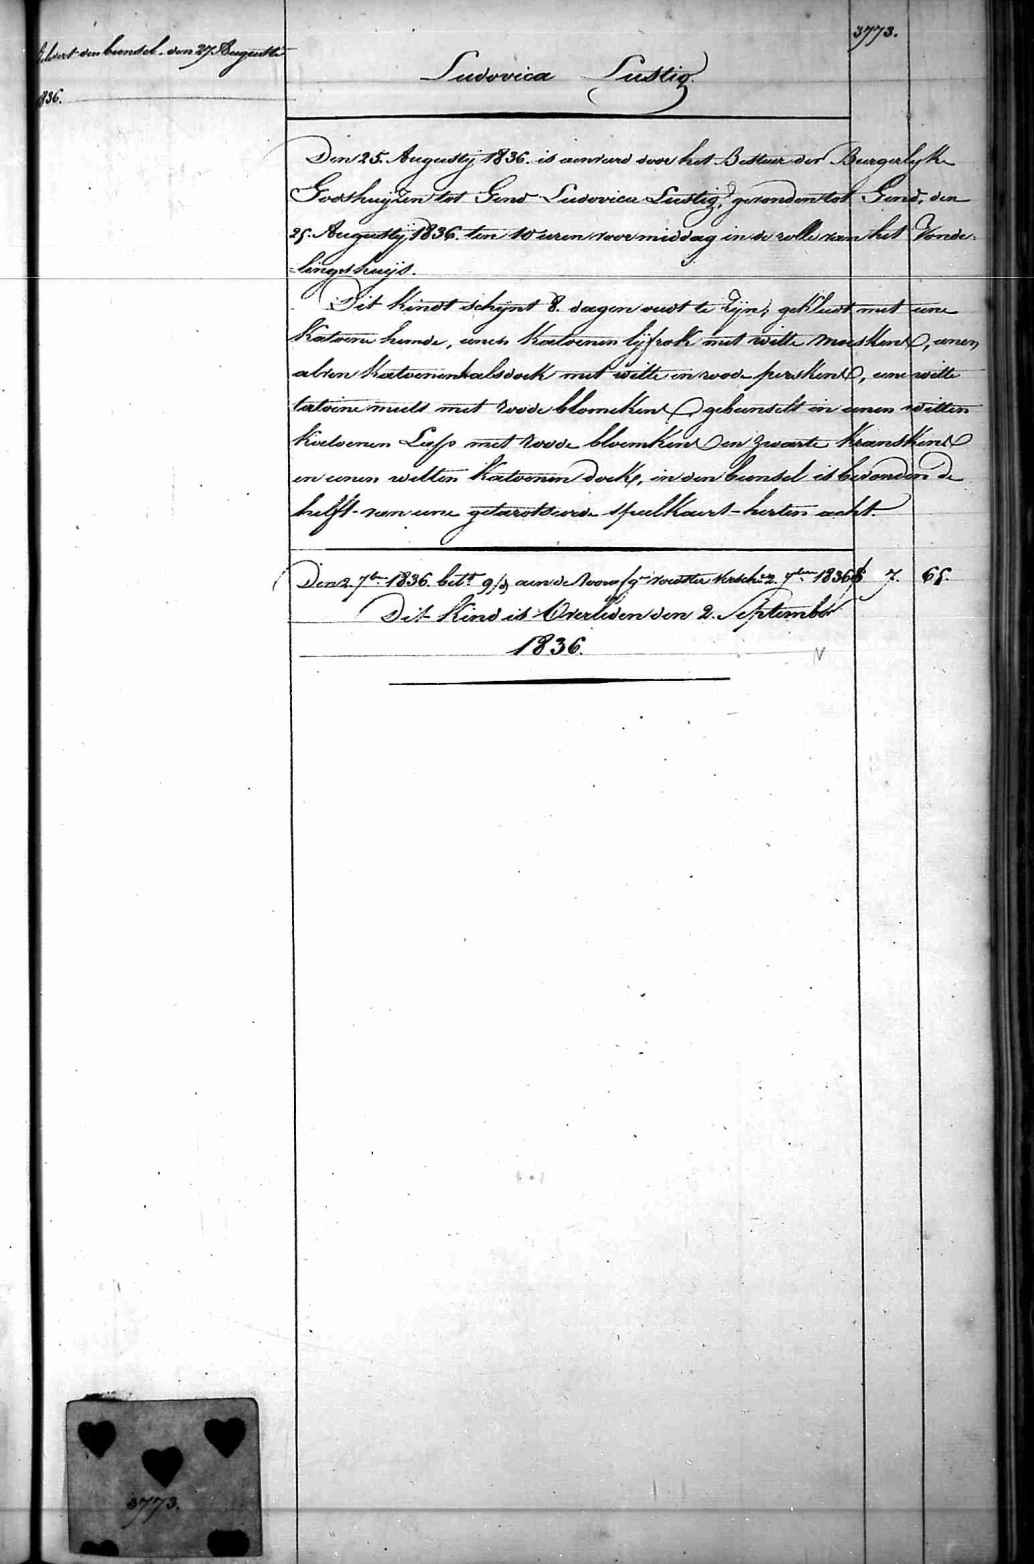 den bundel den 27 Augusti
1836.
3773.
Ludovica Lustig.
Den 25. Augustij 1836. is aenverd door het Bestuur der Burgerlyke
Godshuijzen tot Gend Ludovica Lustig, gevonden tot Gend, den
25. Augustij 1836. ten 10 uren voormiddag in de rolle van het Vonde-
lingshuijs.
Dit kindt schijnt 8. dagen oudt te zijn, gekleed met eene
katoene hemde, eenen katoenen lijfrok met witte moeskens, eenen
katoenen halsdoek met witte en roode perskens, eene witte
katoene muts met roode blomekens, gebunselt in eenen witten
katoenen Lap met roode bloemkens en zwarte kranskens
en eenen witten katoenen doek, in den bunsel is bevonden de
helft van eene getarotseerde speelkaert - herten acht.
Den 2. 7ber 1836. bet. aen de 2. 7ber 1836 7. 65.
Dit Kind is Overleden den 2. September
1836.
3773.